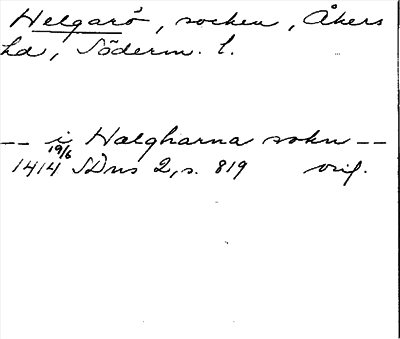 Helgarö, socken, Åkers
hd, Söderm. l.
-- i Halgharna sokn --
19/6
1414 SDns 2, s. 819 orig.